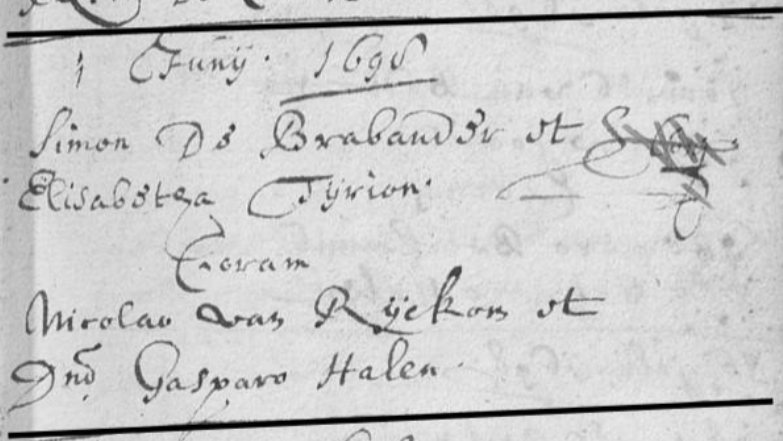 1 Junij. 1698
Simon De Brabander et
Elisabetha Tyrion.
Coram
Nicolao van Ryckom et
Dno Gasparo Halen.